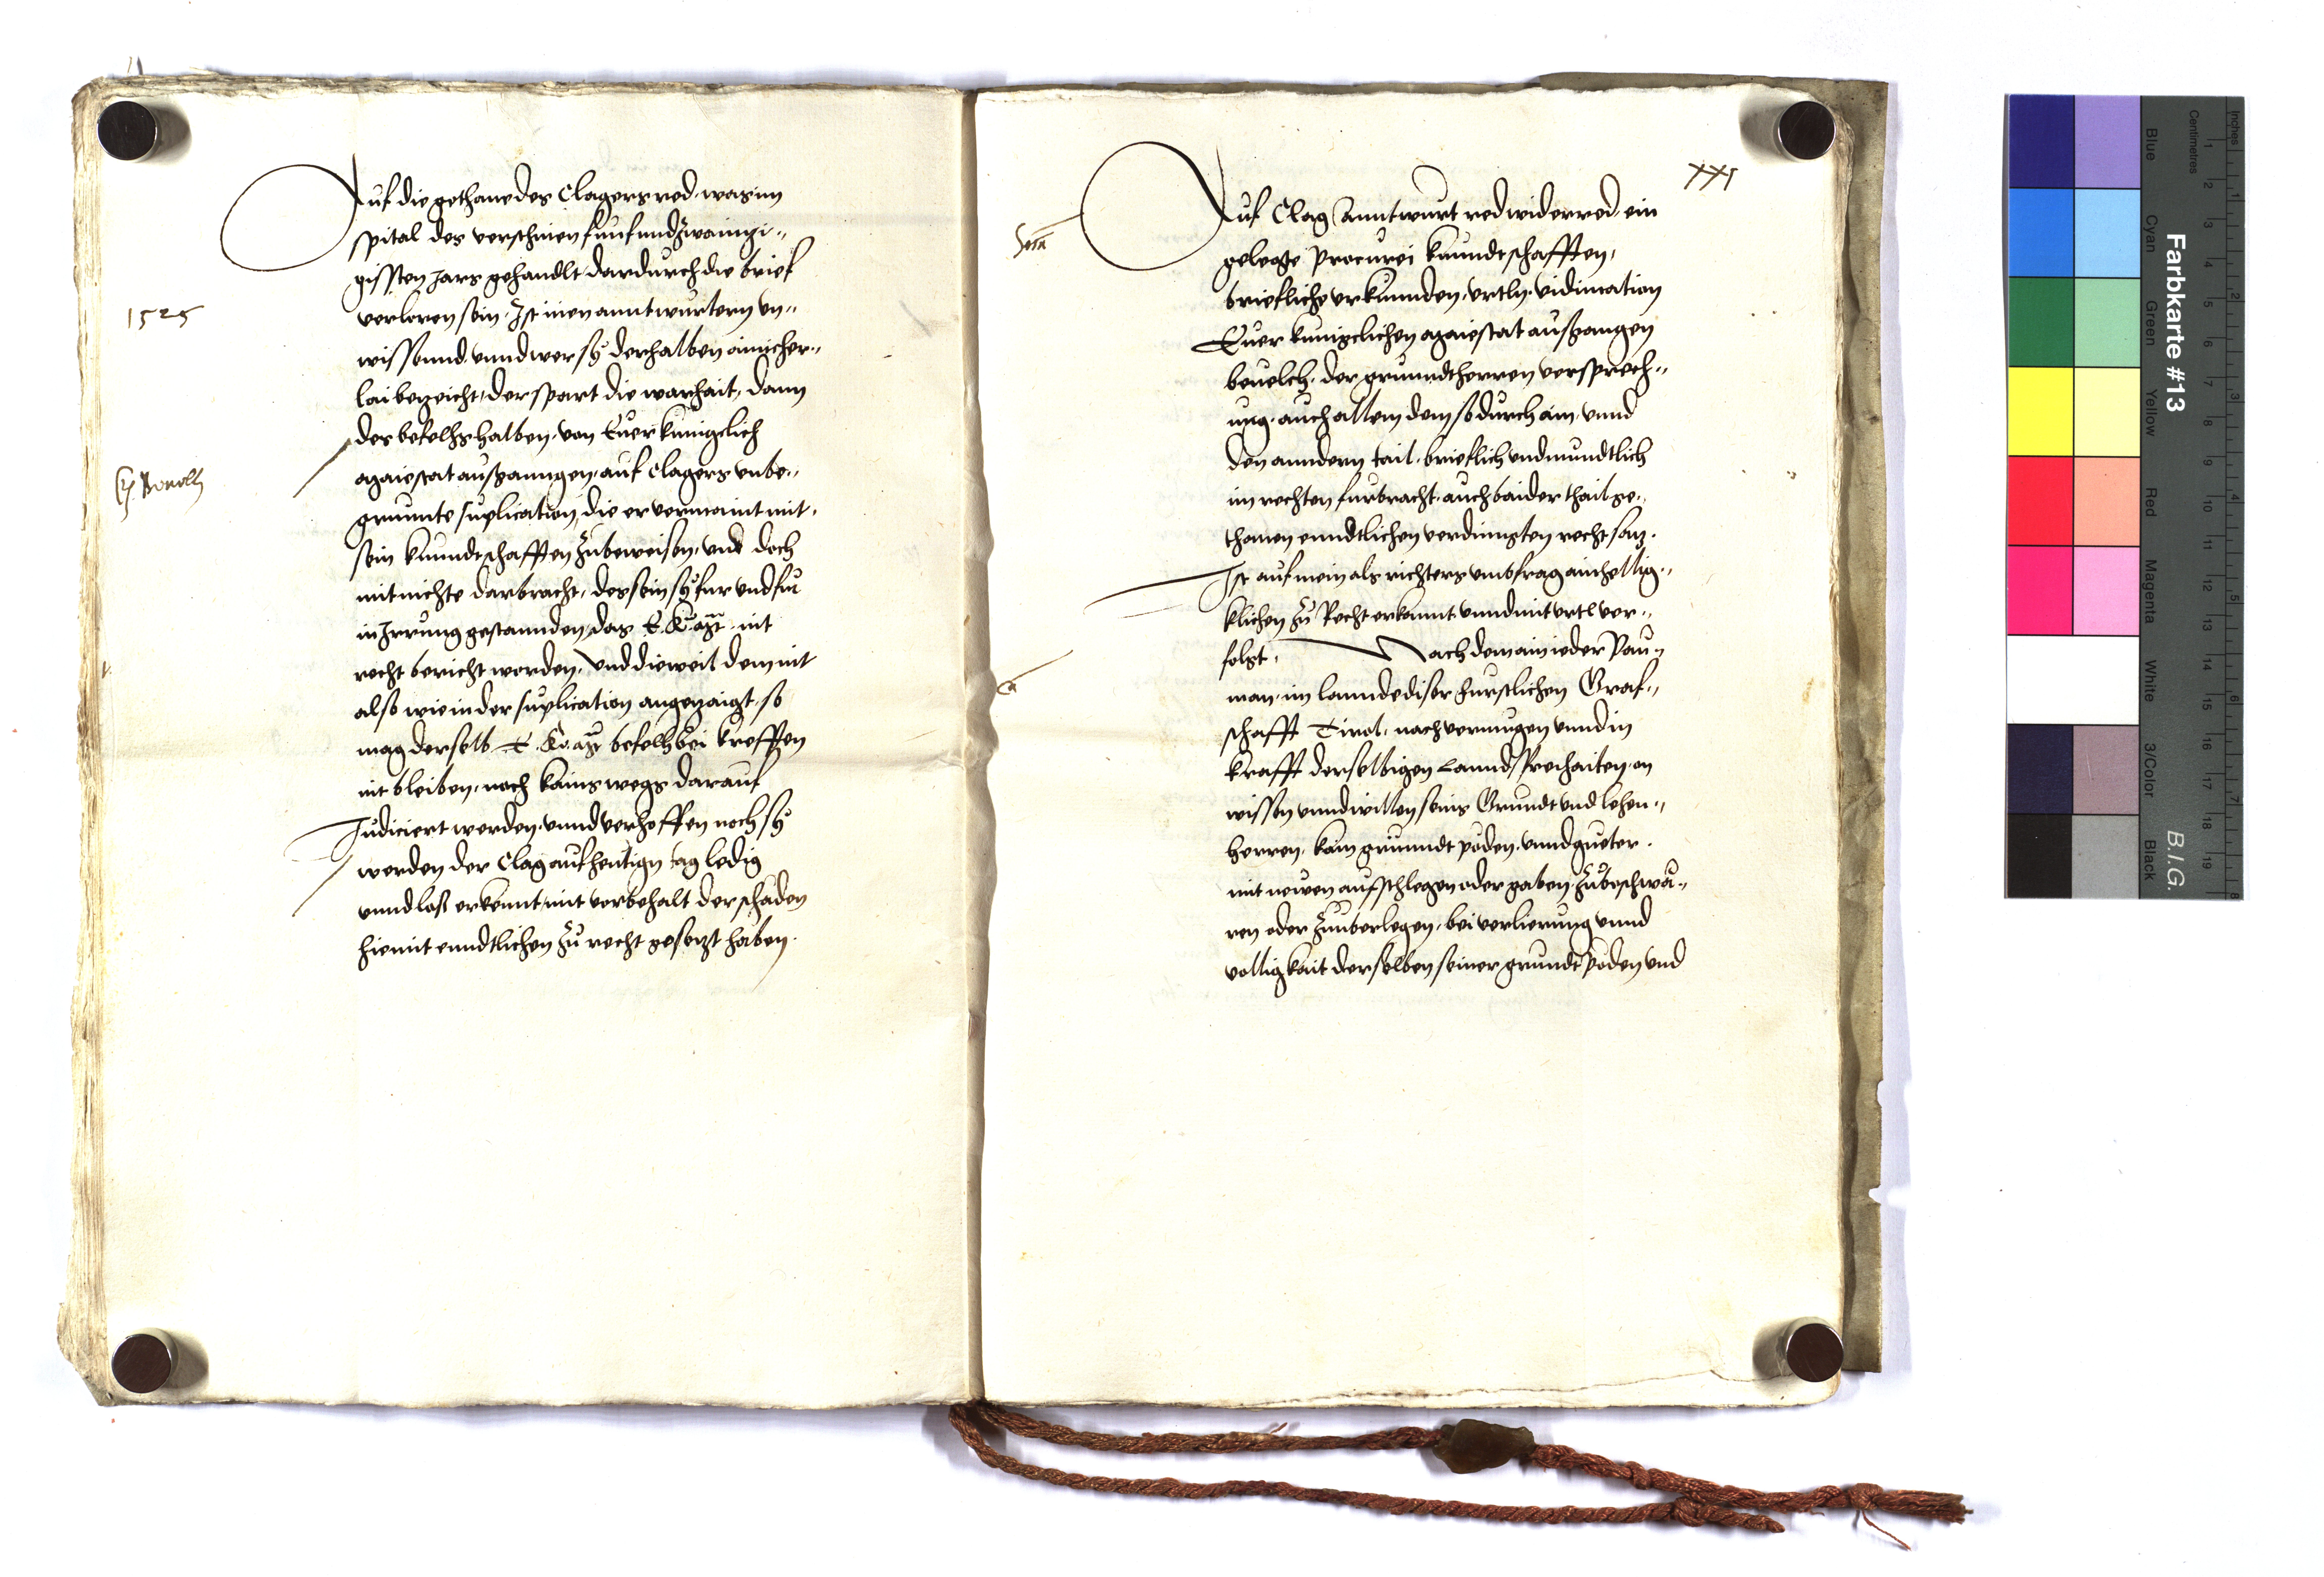 Auf die gethane des Clagers red. was im
spital des verschinen funfundzwaintzi-,,
gissten jars gehandlt dardurch die brief
verloren sein. Ist inen anntwurtern vn,,
1525
wissennd. vnnd wer sy derhalben ainicher,,
lai bezeicht, der spart die warhait, dann
des befelhs halben. von Euer kunigclich
Maiestat außganngen. auf Clagers vnbe,,
grunnte suplication, die er vermaint mit
sein kunndtschafften zubeweisen, vnd doch
mit nichte darbracht, des sein sy fur vnd fur
in Irrung gestannden, das E. Ku. Mt. nit
recht bericht worden. Vnd dieweil dem nit
also wie in der suplication angezaigt. so
mag derselb E. Ku. Mt. befelh bei krefften
nit bleiben, noch kains wegs darauf
Judiciert werden. vnnd verhoffen noch sy
werden der Clag auf heutign tag ledig
vnnd loß erkennt, mit vorbehalt der schaden
hiemit enndtlichen zu recht gesetzt haben.
XXI
Auf Clag Anntwurt red widerred. ein
gelegte procurei kunndtschafften,
briefliche vrkunnden, vrtln. vidimation
Euer kunigclichen Maiestat außgangen
beuelch. der grunndtherren versprech,,
ung. auch allem dem so durch ain. vnnd
den anndern tail. brieflich vnd mundtlich
im rechten furbracht. auch baider thail ge,,
thonen enndtlichen verdingten recht satz.
Ist auf mein als richters vmbfrag ainhellig,,
klichen zu Recht erkannt vnnd mit vrtl ver,,
folgt. Nach dem ain ieder Pau,,
man. im lannde diser furstlichen Graf,,
schafft Tirol. nach vermugen vnnd in
krafft derselbigen Lannd freyhaiten. on
wissen vnnd willen seins Grundt vnd lehen,,
herren. kain grunndt poden. vnnd gueter.
mit newen aufschlegen oder gaben. zubeschwä,,
ren oder zuuberlegen. bei verlierung vnnd
vollig kait derselben seiner grundt poden vnd
Farbkarte #13
B.I.G.
Blue
Cyan
Green
Yellow
Red
Magenta
White
3/Color
Black
Centimetres
Inches